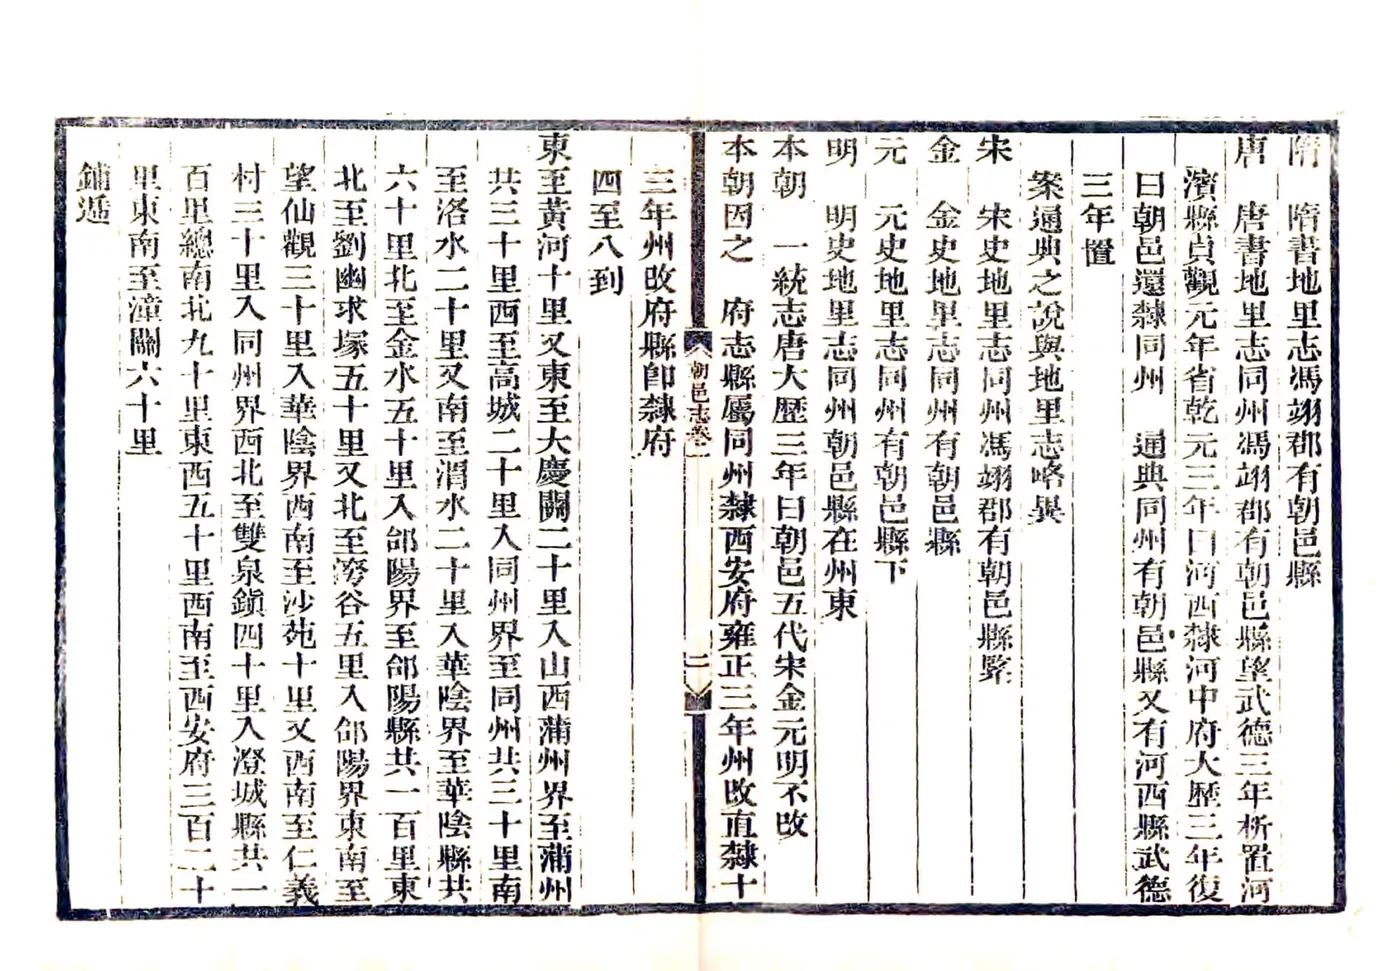 隋　隋書地里志馮翊郡有朝邑縣
唐　唐書地里志同州馮翊郡有朝邑縣望武德三年析置河
濱縣貞觀元年省乾元三年曰河西隸河中府大歷三年復
曰朝邑還隸同州　通典同州有朝邑縣又有河西縣武德
三年置
案通典之說與地里志略異
宋　宋史地里志同州馮翊郡有朝邑縣緊
金　金史地里志同州有朝邑縣
元　元史地里志同州有朝邑縣下
明　明史地里志同州朝邑縣在州東
本朝　一統志唐大歷三年曰朝邑五代宋金元明不改
本朝因之　府志縣屬同州隸西安府雍正三年州改直隸十
朝邑志卷二
二
三年州改府縣卽隸府
四至八到
東至黃河十里又東至大慶關二十里入山西蒲州界至蒲州
共三十里西至高城二十里入同州界至同州共三十里南
至洛水二十里又南至渭水二十里入華陰界至華陰縣共
六十里北至金水五十里入郃陽界至郃陽縣共一百里東
北至劉幽求塚五十里又北至谷五里入郃陽界東南至
望仙觀三十里入華陰界西南至沙苑十里又西南至仁義
村三十里入同州界西北至雙泉鎮四十里入澄城縣共一
百里總南北九十里東西五十里西南至西安府三百二十
里東南至潼關六十里
鋪遞